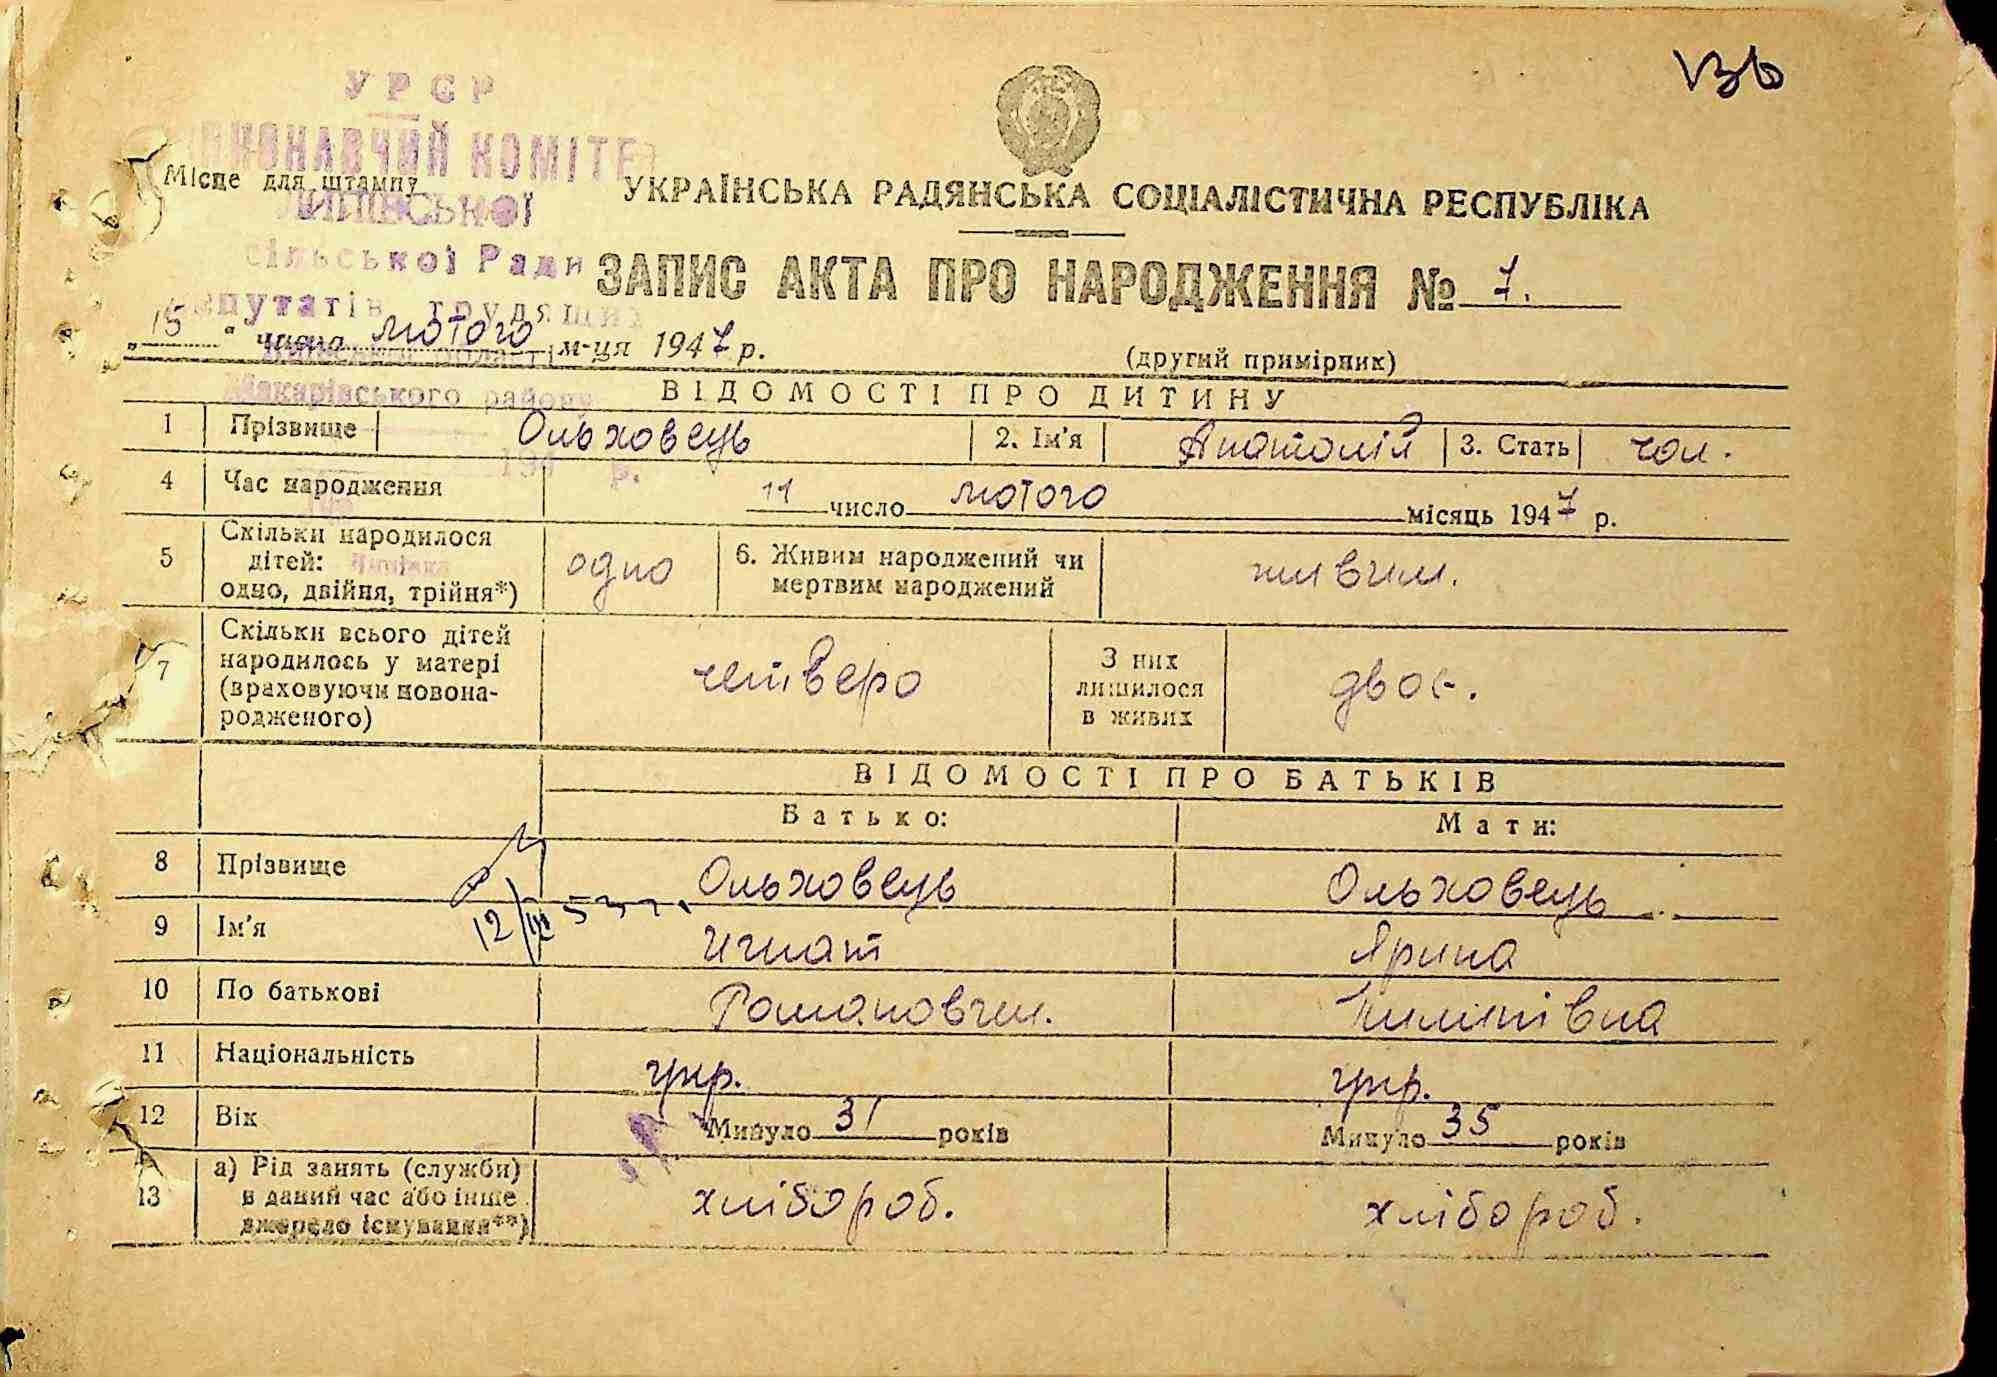 УРСР
ВИКОНАВЧИЙ КОМІТЕТ
Місце для штампу
сільської Ради
депутатів трудящих
Макарівського району
194 р.
УКРАЇНСЬКА РАДЯНСЬКА СОЦІАЛІСТИЧНА РЕСПУБЛІКА
ЗАПИС АКТА ПРО НАРОДЖЕННЯ № 7.
„15“ числа лютого м-ця 1947 р.
(другий примірник)
ВІДОМОСТІ ПРО ДИТИНУ
1 Прізвище Ольховець 2. Ім'я Анатолій 3. Стать чол.
4 Час народження 11 число лютого місяць 1947 р.
5 Скільки народилося дітей: одно, двійня, трійня*) одно 6. Живим народжений чи мертвим народжений живим.
7 Скільки всього дітей народилось у матері (враховуючи новонародженого) четверо З них лишилося в живих двоє.
ВІДОМОСТІ ПРО БАТЬКІВ
Батько: Мати:
8 Прізвище Ольховець Ольховець
12/III 53 г.
9 Ім'я Игнат Ярина
10 По батькові Романович. Пилипівна
11 Національність укр. укр.
12 Вік Минуло 31 років Минуло 35 років
13 а) Рід занять (служби) в даний час або інше джерело існування**) хлібороб. хлібороб.